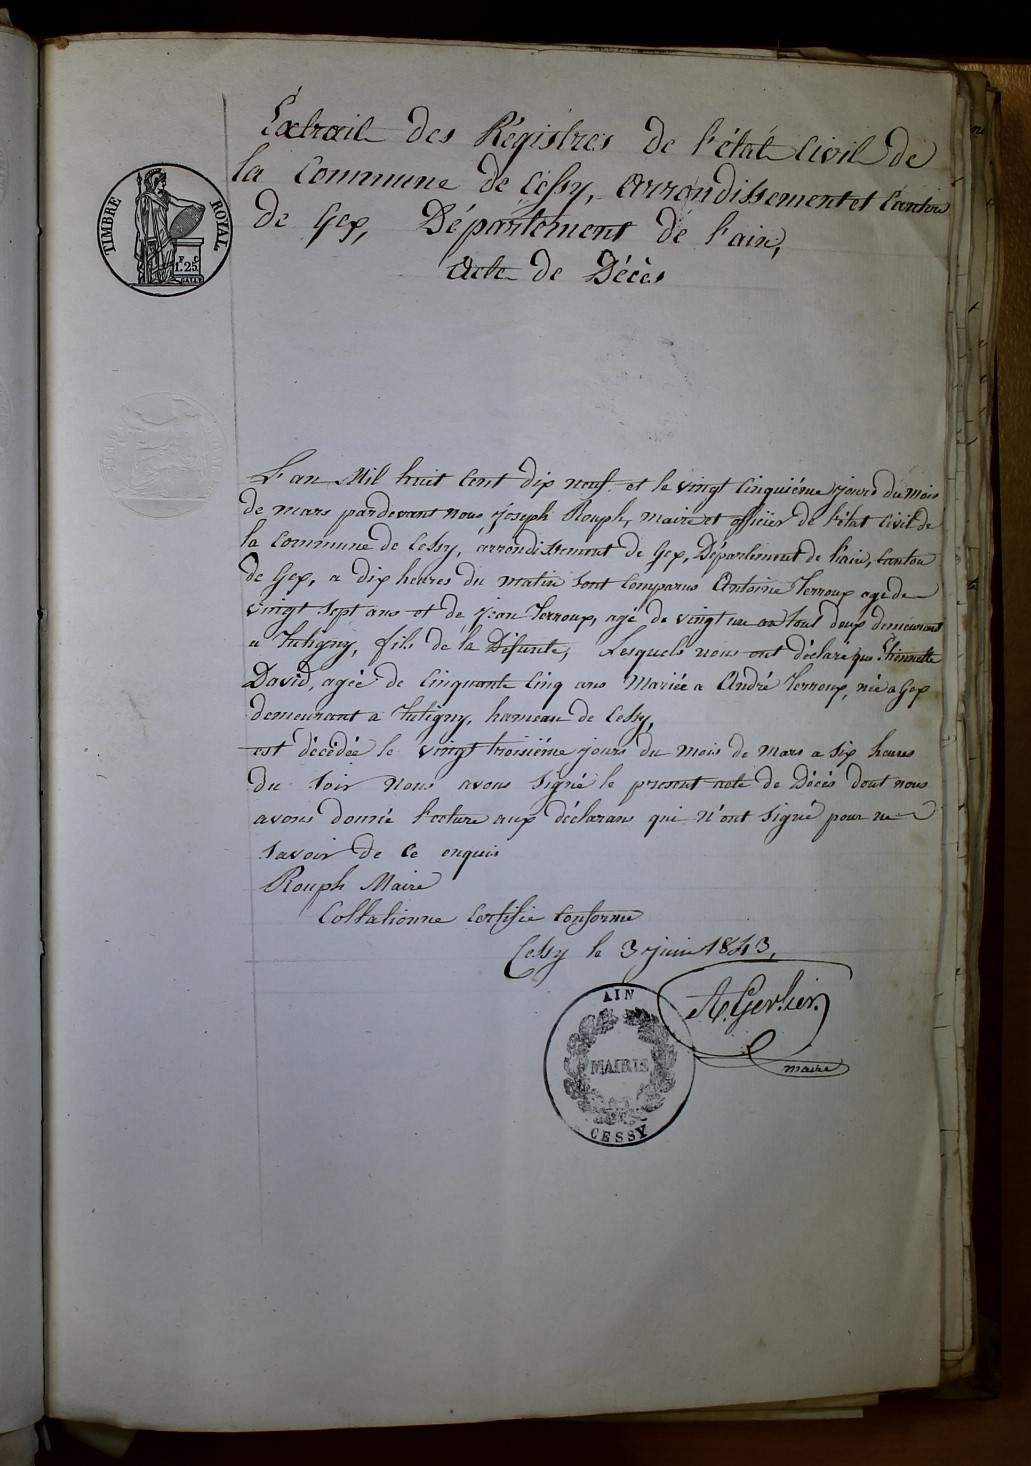 Extrait des Régistres de l'état Civil de
la Commune de Cessy, arrondissement et Canton
de Gex, Département de l'ain,
Acte de Décès
TIMBRE ROYAL
F. C.
1. 25.
L'an Mil huit Cent dix neuf et le vingt Cinquiéme jours du mois
de mars pardevant nous, Joseph Rouph, maire et officier de l'état Civil de
la Commune de Cessy, arrondissement de Gex, Département de l'ain, Canton
de Gex, a dix heures du matin sont Comparus Antoine Terroux agé de
vingt sept ans et de Jean Terroux, agé de vingt un an tous deux demeurant
a Tutigny, fils de la Défunte, Lesquels nous ont déclaré que Etiennette
David, agée de Cinquante Cinq ans Mariée a André Terroux, née a Gex
demeurant a Tutigny, hameau de Cessy,
est décédée le vingt troisiéme jours du mois de mars a six heures
du soir Nous avons signé le présent acte de Décès dont nous
avons donné lecture aux déclarans qui n'ont signé pour ne
savoir de ce enquis
Rouph Maire
Collationné Certifié Conforme
Cessy le 3 juin 1843,
A. Gerlier.
maire
AIN
MAIRIE
CESSY